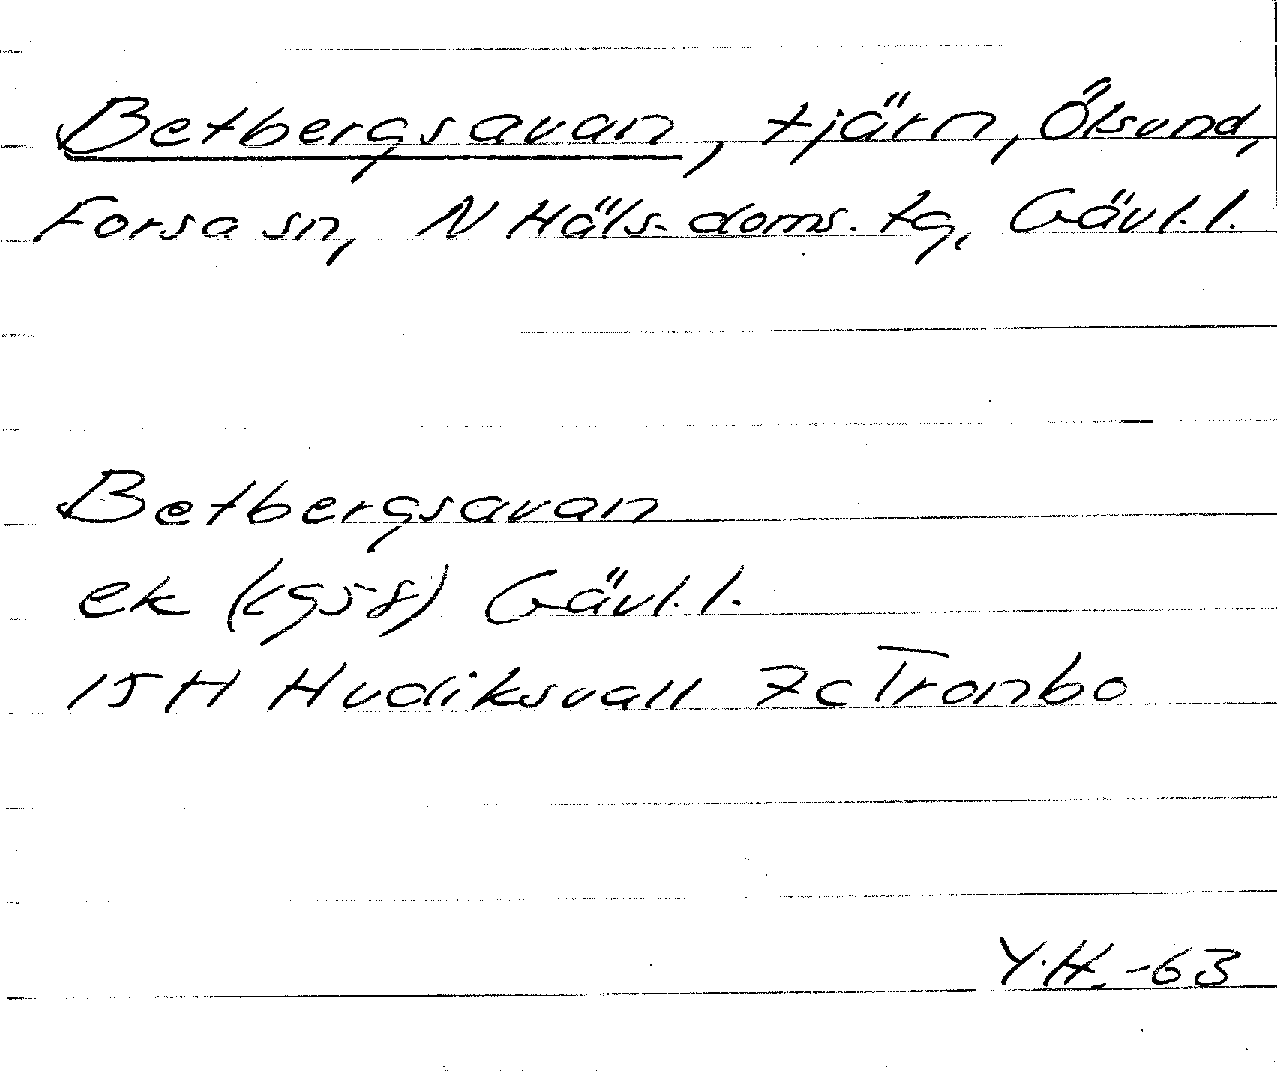 Betbergsavan, tjärn, Ölsund,
Forsa sn, N Häls. doms. tg, Gävl. l.
Betbergsavan
ek (1958) Gävl. l.
15H Hudiksvall 7c Tronbo
Y.H. -63